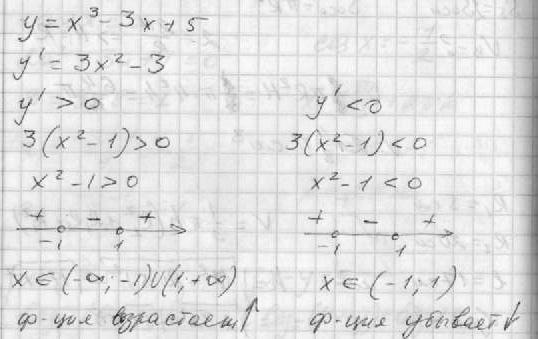 y = x³ - 3x + 5
y' = 3x² - 3
y' > 0
3(x² - 1) > 0
x² - 1 > 0
+ - +
-1 1
x ∈ (-∞; -1)∪(1, +∞)
ф-ция возрастает↑
y' < 0
3(x² - 1) < 0
x² - 1 < 0
+ - +
-1 1
x ∈ (-1; 1)
ф-ция убывает↓